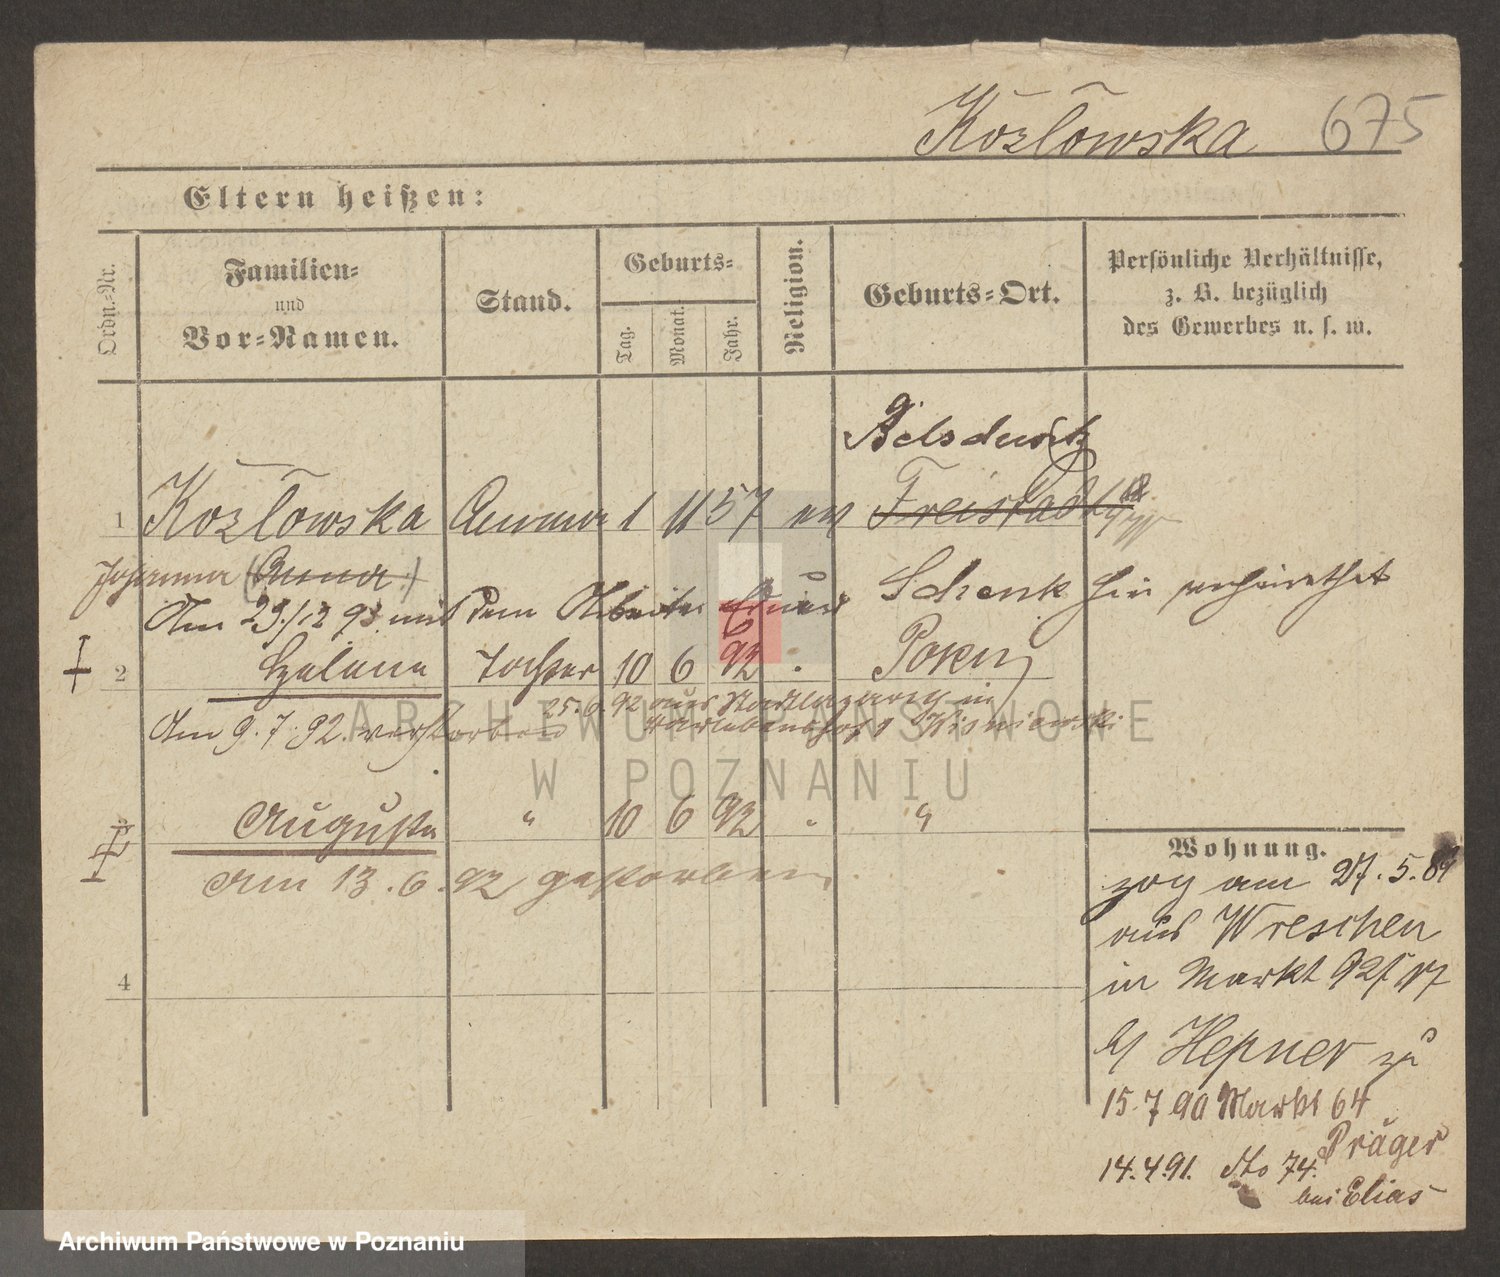 Kozłowska 675
Eltern heißen:
Ordn.-Nr.
Familien-
und
Vor-Namen.
Stand.
Geburts-
Tag.
Monat.
Jahr.
Religion.
Geburts-Ort.
Persönliche Verhältnisse,
z. B. bezüglich
des Gewerbes u. s. w.
1 Kozłowska Amme 1 11 57 ev Freistadt
Johanna (Anna)
Am 29/12 93 mit dem Arbeiter Eduard Schenk hier verheirathet
2 Helene Tochter 10 6 92 Posen
25.6.92 aus Stadtlazareth in
Am 9.7.92 verstorben
3 Auguste " 10 6 92 " "
Am 13.6.92 gestorben
4
Wohnung.
zog am 27.5.89
aus Wreschen
in Markt 92/
b/ Hepner zu
15.7.90 Markt 64
Präger
14.4.91. dto 74.
bei Elias
ARCHIWUM PAŃSTWOWE
W POZNANIU
Archiwum Państwowe w Poznaniu